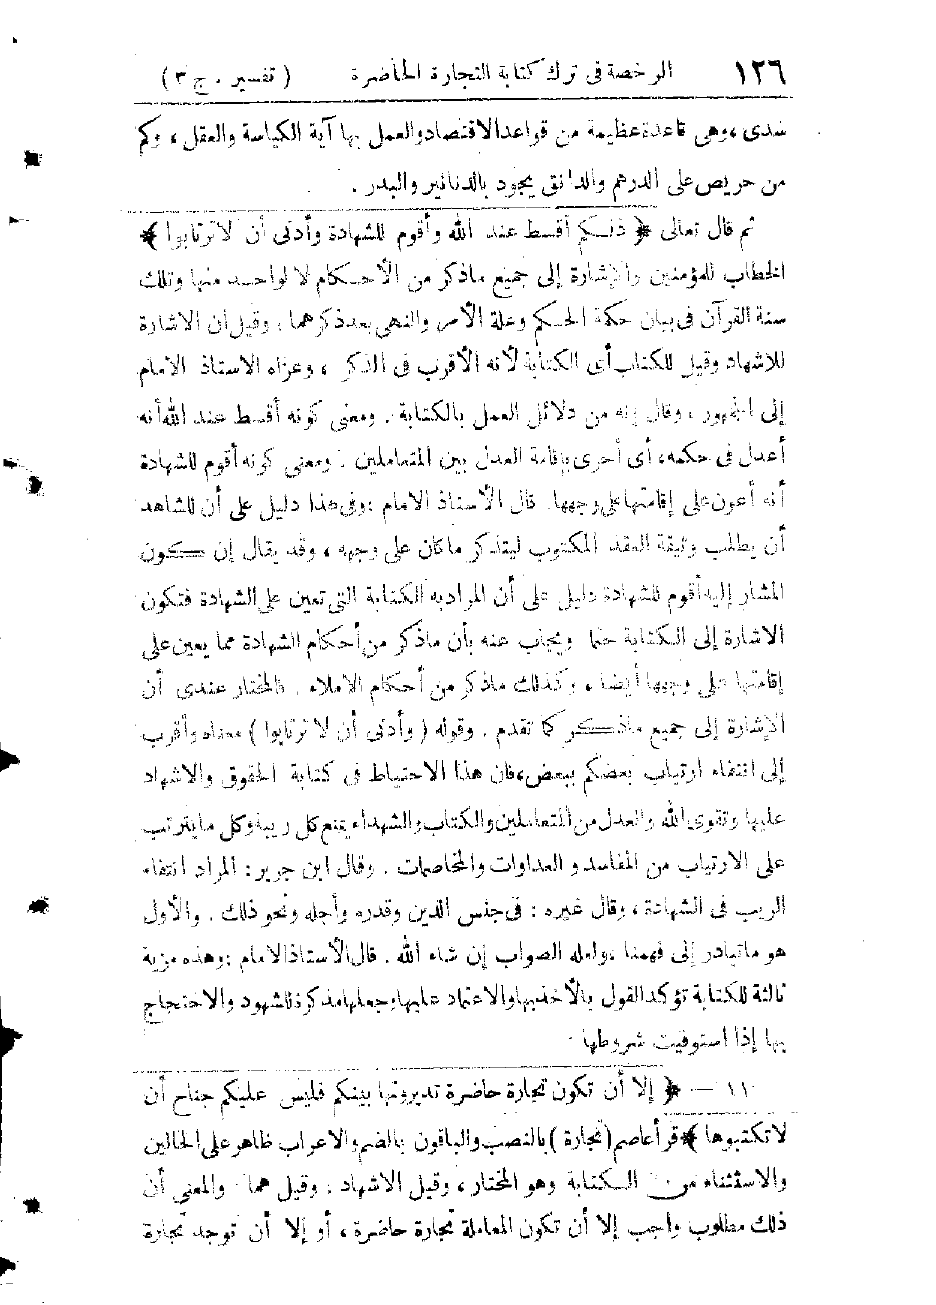 ١٢٦ الرخصة فى ترك كتابة التجارة الحاضرة ( تفسير . ج ٣ )
شدى ، وهى قاعدة عظيمة من قواعد الاقتصاد والعمل بها آية الكياسة والعقل ، وكم
من حريص على الدرهم والدانق يجود بالدنانير والبدر .
ثم قال تعالى ﴿ ذلكم أقسط عند الله وأقوم للشهادة وأدنى أن لا ترتابوا ﴾
الخطاب للمؤمنين والإشارة إلى جميع ماذكر من الأحكام لا لواحد منها وتلك
سنة القرآن فى بيان حكمة الحكم وعلة الأمر والنهى بعد ذكرهما ، وقيل ان الاشارة
للاشهاد وقيل للكتاب أى الكتابة لأنه الأقرب فى الذكر ، وعزاه الاستاذ الامام
إلى الجمهور ، وقال إنه من دلائل العمل بالكتابة . ومعنى كونه أقسط عند الله أنه
أعدل فى حكمه ، أى أحرى بإقامة العدل بين المتعاملين . ومعنى كونه أقوم للشهادة
أنه أعون على إقامتها على وجهها . قال الأستاذ الامام : وفى هذا دليل على أن للشاهد
أن يطلب وثيقة العقد المكتوب ليتذكر ماكان على وجهه ، وقد يقال إن كون
المشار إليه أقوم للشهادة دليل على أن المراد به الكتابة التى تعين على الشهادة فتكون
الاشارة إلى الكتابة حتما ويجاب عنه بأن ماذكر من أحكام الشهادة مما يعين على
إقامتها على وجهها أيضا ، وكذلك ماذكر من أحكام الاملاء . فالمختار عندى أن
الإشارة إلى جميع ماذكر كما تقدم . وقوله ( وأدنى أن لا ترتابوا ) معناه وأقرب
إلى انتفاء ارتياب بعضكم ببعض ، فان هذا الاحتياط فى كتابة الحقوق والاشهاد
عليها وتقوى الله والعدل من المتعاملين والكتاب والشهداء يمنع كل ريبة وكل مايترتب
على الارتياب من المفاسد والعداوات والمخاصمات . وقال ابن جرير : المراد انتفاء
الريب فى الشهادة ، وقال غيره : فى جنس الدين وقدره وأجله ونحو ذلك . والأول
هو ماتبادر إلى فهمنا ، ولعله الصواب إن شاء الله . قال الأستاذ الامام : وهذه مزية
ثالثة للكتابة تؤكد القول بالأخذ بها والاعتماد عليها وجعلها مذكرة للشهود والاحتجاج
بها إذا استوفيت شروطها .
١١ — ﴿ إلا أن تكون تجارة حاضرة تديرونها بينكم فليس عليكم جناح أن
لا تكتبوها ﴾ قرأ عاصم ( تجارة ) بالنصب والباقون بالضم والاعراب ظاهر على الحالين
والاستثناء من الكتابة وهو المختار ، وقيل الاشهاد . وقيل هما والمعنى أن
ذلك مطلوب واجب إلا أن تكون المعاملة تجارة حاضرة ، أو إلا أن توجد تجارة